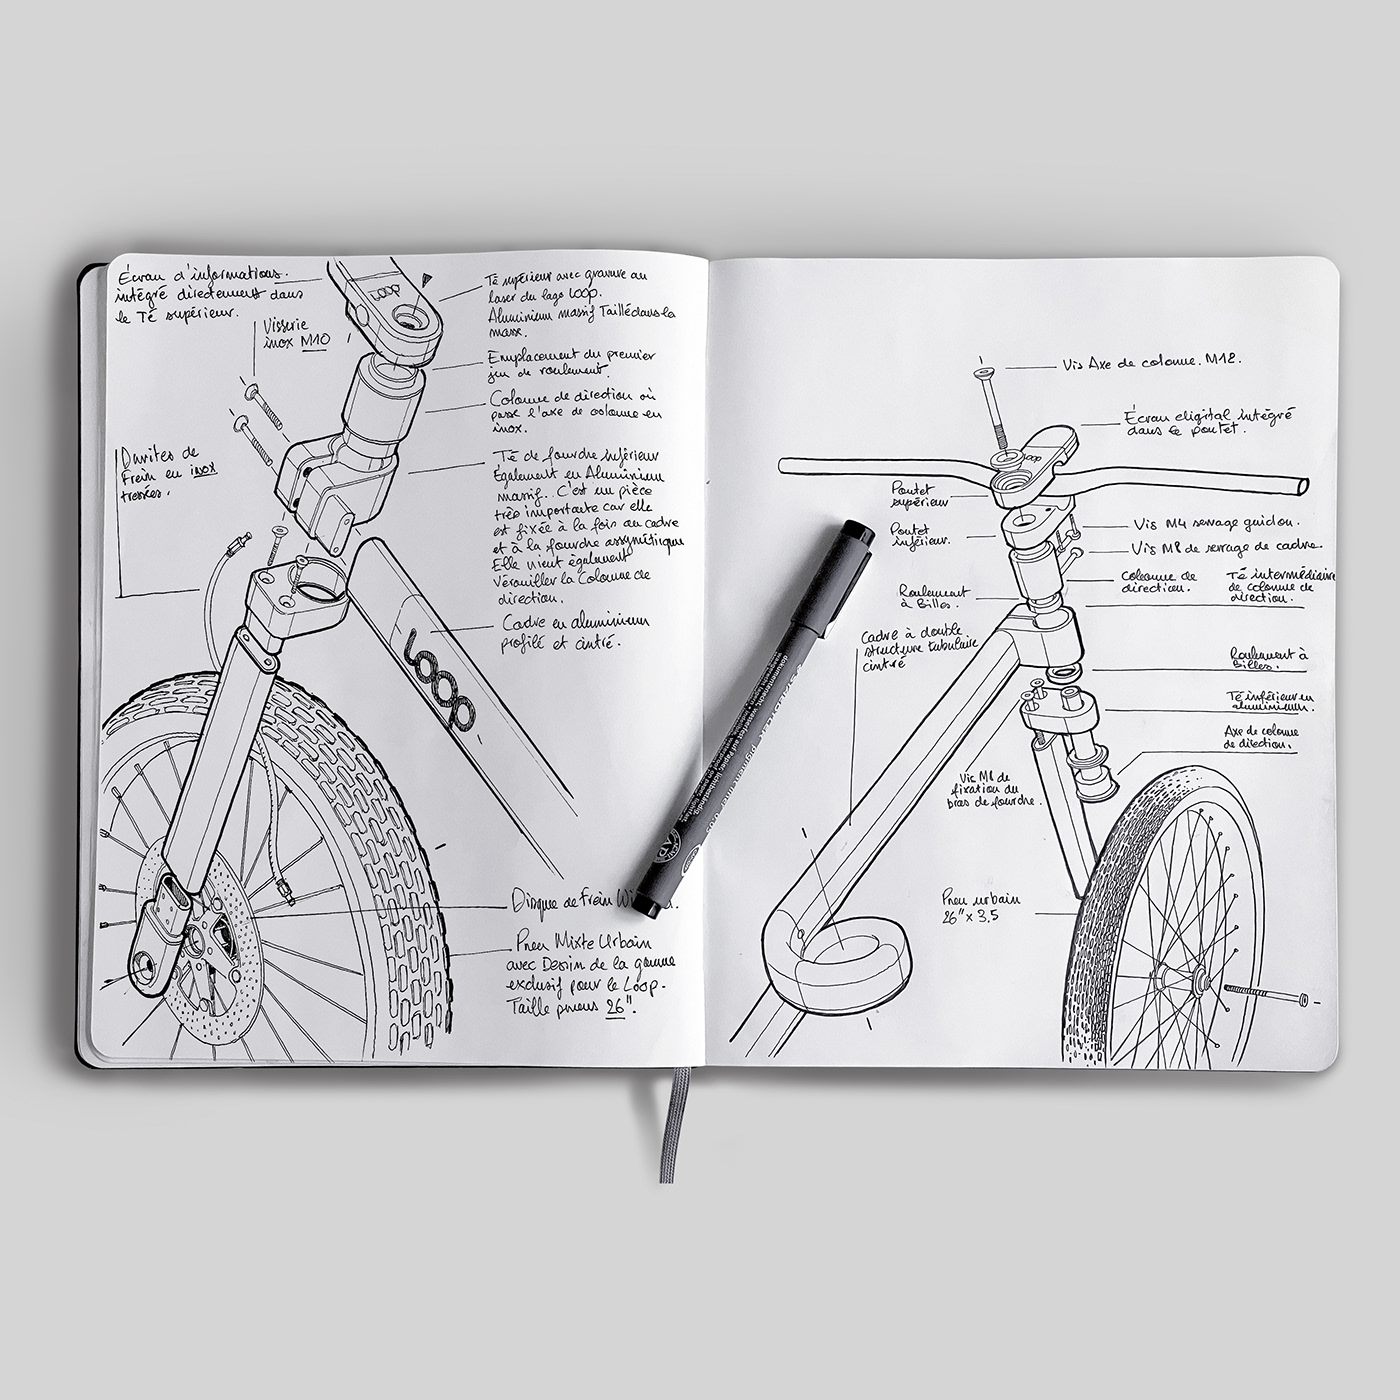 Écran d'informations.
intégré directement dans
le Té supérieur.
Visserie
inox M10
Durites de
Frein en inox
tressées.
LOOP
Té supérieur avec gravure au
laser du logo LOOP.
Aluminium massif Taillé dans la
masse.
Emplacement du premier
jeu de roulement.
Colonne de direction où
passe l'axe de colonne en
inox.
Té de fourche inférieur
également en Aluminium
massif. C'est un pièce
très importante car elle
est fixée à la fois au cadre
et à la fourche assymétrique
Elle vient également
Verouiller la Colonne de
direction.
Cadre en aluminium
profilé et cintré.
Loop
Disque de Frein
Pneu Mixte Urbain
avec Dessin de la gomme
exclusif pour le Loop.
Taille pneus 26".
Vis Axe de colonne. M18.
Écran digital intégré
dans le poutet.
LOOP
Poutet
supérieur
Poutet
inférieur.
Vis M4 serrage guidon.
Vis M8 de serrage de cadre.
Colonne de
direction.
Té intermédiaire
de colonne de
direction.
Roulement
à Billes.
Cadre à double
structure tubulaire
cintré
Roulement à
Billes.
Té inférieur en
aluminium.
Axe de colonne
de direction.
Vis M8 de
fixation du
bras de fourche.
Pneu urbain
26" x 3.5